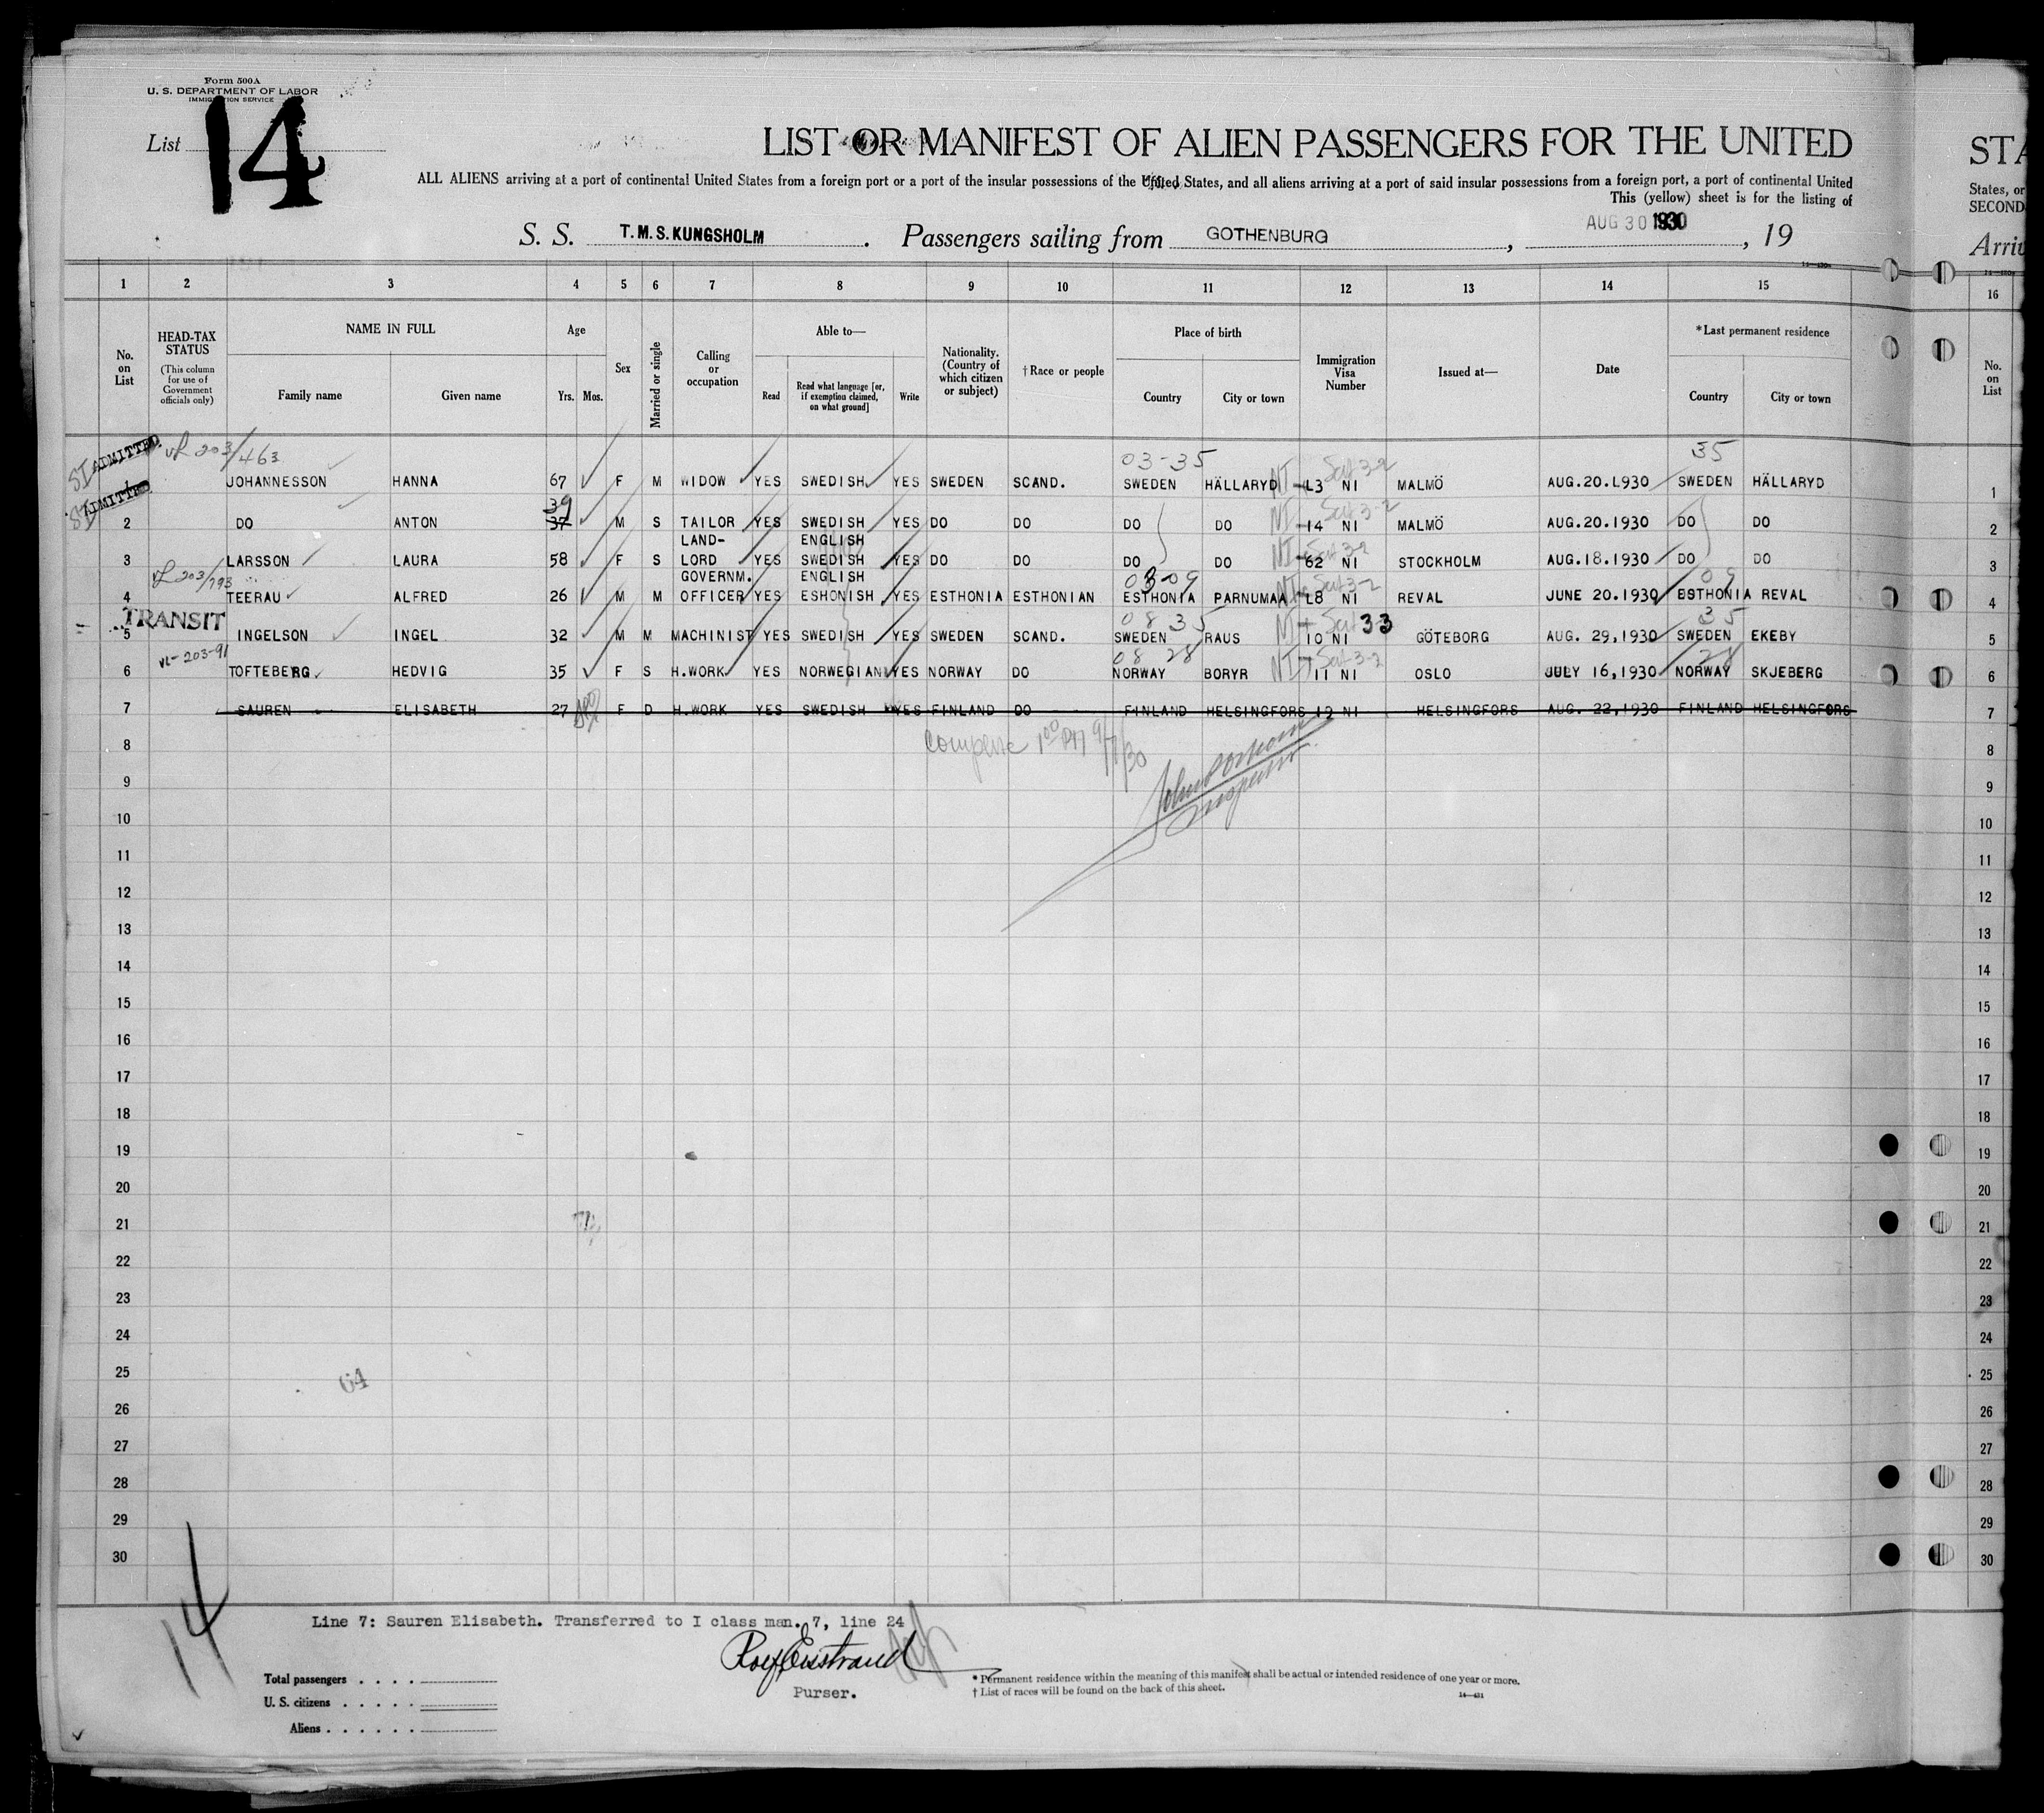 Form 500A
U. S. DEPARTMENT OF LABOR
IMMIGRATION SERVICE
List 14
LIST OR MANIFEST OF ALIEN PASSENGERS FOR THE UNITED
STA
ALL ALIENS arriving at a port of continental United States from a foreign port or a port of the insular possessions of the United States, and all aliens arriving at a port of said insular possessions from a foreign port, a port of continental United
States, or
This (yellow) sheet is for the listing of
SECOND
S. S. T.M.S. KUNGSHOLM. Passengers sailing from GOTHENBURG, AUG 30 1930, 19
Arriv
1 2 3 4 5 6 7 8 9 10 11 12 13 14 15 16
No. on List
HEAD-TAX STATUS (This column for use of Government officials only)
NAME IN FULL Family name Given name
Age Yrs. Mos.
Sex
Married or single
Calling or occupation
Able to— Read Read what language [or, if exemption claimed, on what ground] Write
Nationality. (Country of which citizen or subject)
†Race or people
Place of birth Country City or town
Immigration Visa Number
Issued at—
Date
*Last permanent residence Country City or town
No. on List
ADMITTED 203/463 03-35 35
JOHANNESSON HANNA 67 F M WIDOW YES SWEDISH YES SWEDEN SCAND. SWEDEN HÄLLARYD L3 NI MALMÖ AUG.20.L930 SWEDEN HÄLLARYD 1
ADMITTED 39
2 DO ANTON 37 M S TAILOR YES SWEDISH YES DO DO DO DO 14 NI MALMÖ AUG.20.1930 DO DO 2
LAND- ENGLISH
3 LARSSON LAURA 58 F S LORD YES SWEDISH YES DO DO DO DO 62 NI STOCKHOLM AUG.18.1930 DO DO 3
203/793 GOVERNM. ENGLISH 03-09 09
4 TEERAU ALFRED 26 M M OFFICER YES ESHONISH YES ESTHONIA ESTHONIAN ESTHONIA PARNUMAA L8 NI REVAL JUNE 20.1930 ESTHONIA REVAL 4
TRANSIT 08 35 33 35
5 INGELSON INGEL 32 M M MACHINIST YES SWEDISH YES SWEDEN SCAND. SWEDEN RAUS 10 NI GÖTEBORG AUG. 29,1930 SWEDEN EKEBY 5
203-91 08 28 28
6 TOFTEBERG HEDVIG 35 F S H.WORK YES NORWEGIAN YES NORWAY DO NORWAY BORYR 11 NI OSLO JULY 16,1930 NORWAY SKJEBERG 6
7 SAUREN ELISABETH 27 F D H.WORK YES SWEDISH YES FINLAND DO FINLAND HELSINGFORS 19 NI HELSINGFORS AUG. 22,1930 FINLAND HELSINGFORS 7
8 8
9 9
10 10
11 11
12 12
13 13
14 14
15 15
16 16
17 17
18 18
19 19
20 20
21 21
22 22
23 23
24 24
25 25
26 26
27 27
28 28
29 29
30 30
64
14
Line 7: Sauren Elisabeth. Transferred to I class man. 7, line 24
Purser.
Total passengers . . . .
U. S. citizens . . . . .
Aliens . . . . . .
* Permanent residence within the meaning of this manifest shall be actual or intended residence of one year or more.
† List of races will be found on the back of this sheet.